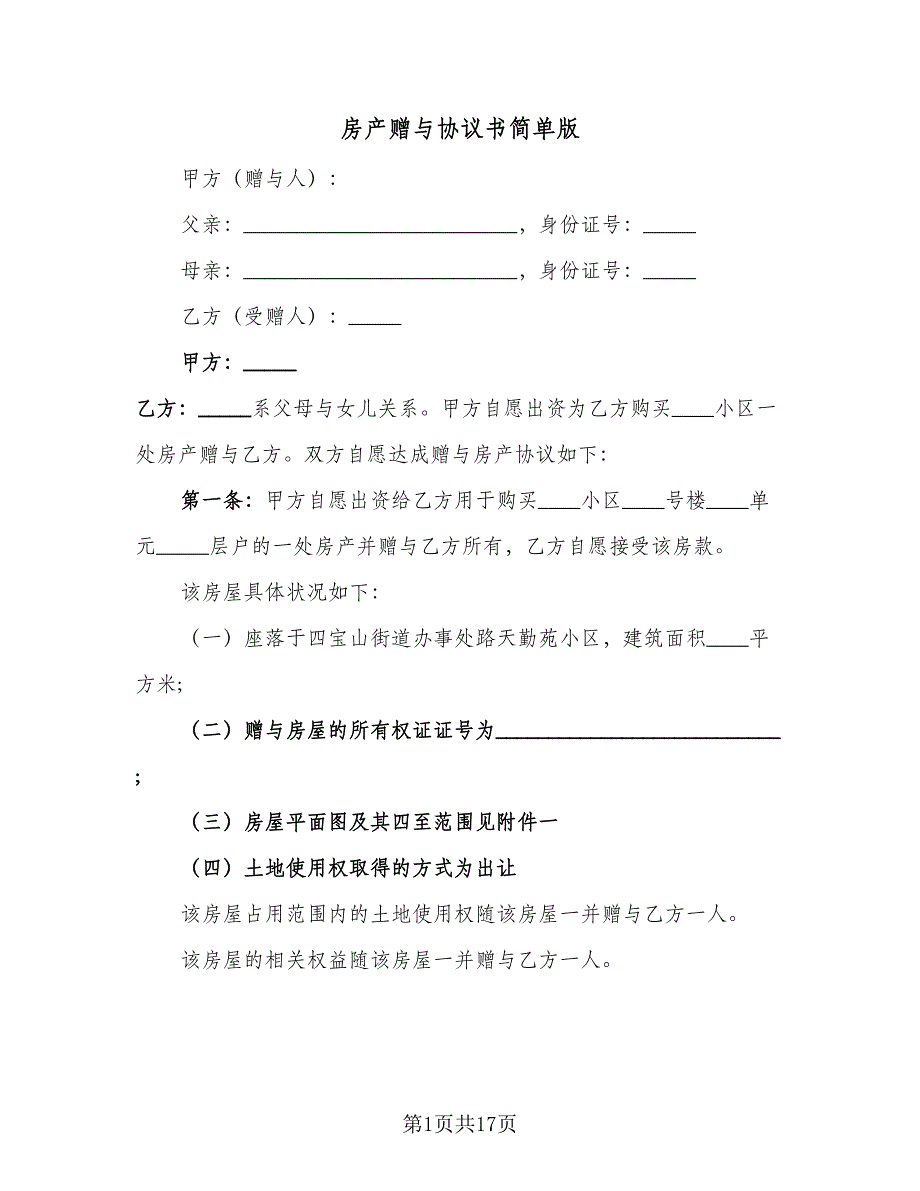 房产赠与协议书简单版
甲方（赠与人）：
父亲：__________________________，身份证号：_____
母亲：__________________________，身份证号：_____
乙方（受赠人）：_____
甲方：_____
乙方：_____系父母与女儿关系。甲方自愿出资为乙方购买____小区一
处房产赠与乙方。双方自愿达成赠与房产协议如下：
第一条：甲方自愿出资给乙方用于购买____小区____号楼____单
元_____层户的一处房产并赠与乙方所有，乙方自愿接受该房款。
该房屋具体状况如下：
（一）座落于四宝山街道办事处路天勤苑小区，建筑面积____平
方米;
（二）赠与房屋的所有权证证号为___________________________
;
（三）房屋平面图及其四至范围见附件一
（四）土地使用权取得的方式为出让
该房屋占用范围内的土地使用权随该房屋一并赠与乙方一人。
该房屋的相关权益随该房屋一并赠与乙方一人。
第1页共17页